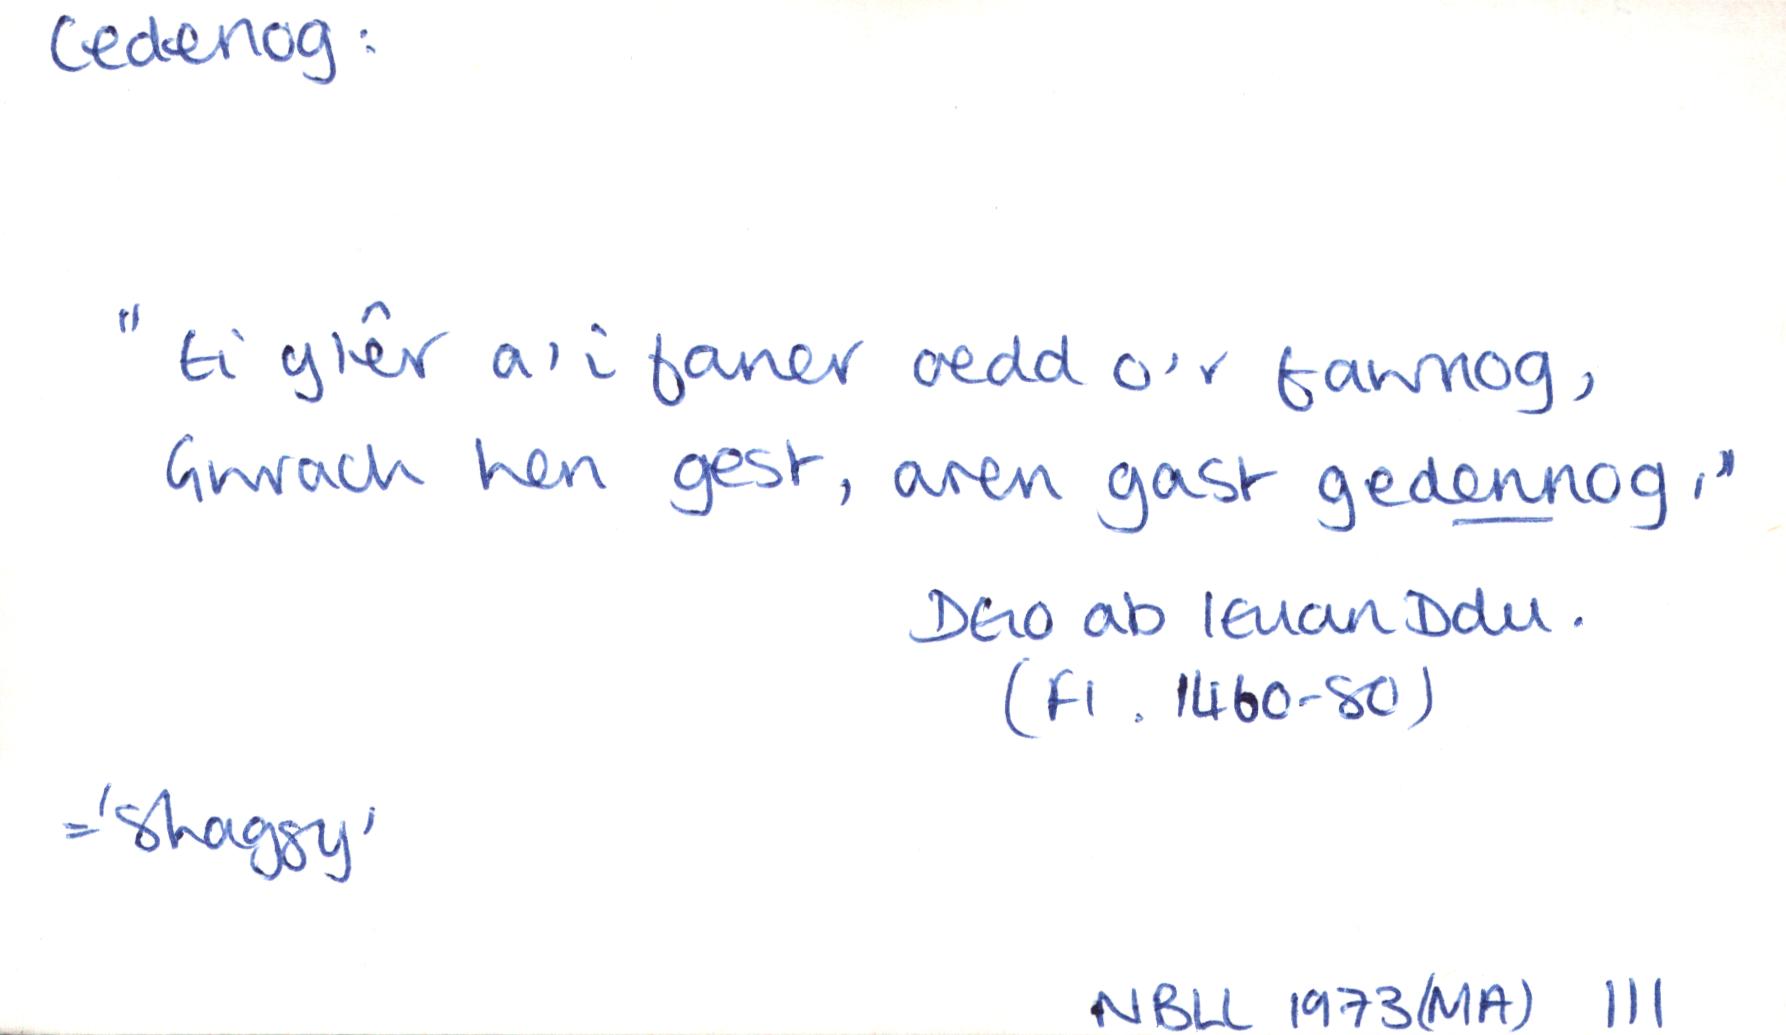 Cedenog:
" Ei glêr a'i faner oedd o'r fawnog,
Gwrach hen gest, aren gast gedennog,"
Deio ab Ieuan Ddu.
(Fl. 1460-80)
='Shaggy'
NBLL 1973(MA) 111